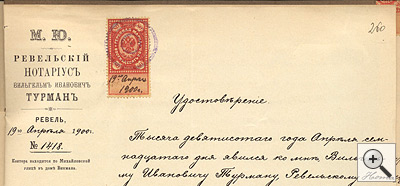 260
М. Ю.
РЕВЕЛЬСКІЙ
НОТАРІУСЪ
ВИЛЬГЕЛЬМЪ ИВАНОВИЧЪ
ТУРМАНЪ
РЕВЕЛЬ,
19го Апрѣля 1900 г.
№ 1418.
Контора находится по Михайловской
улицѣ въ домѣ
19го Апрѣля
1900 г.
Удостовѣреніе.
Тысяча девятисотаго года Апрѣля сем-
надцатаго дня явился ко мнѣ, Виль
му Ивановичу Турману, Ревельскому